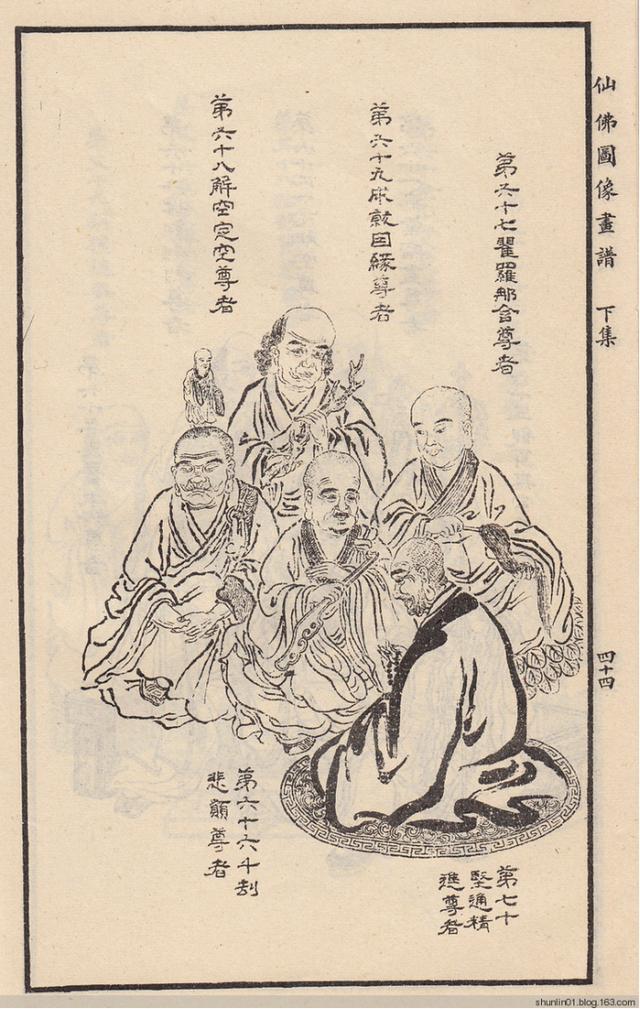 仙佛圖像畫譜 下集
四十四
第六十七瞿羅那含尊者
第六十九成就因緣尊者
第六十八解空定空尊者
第六十六千刦
悲願尊者
第七十
堅通精
進尊者
shunlin01.blog.163.com